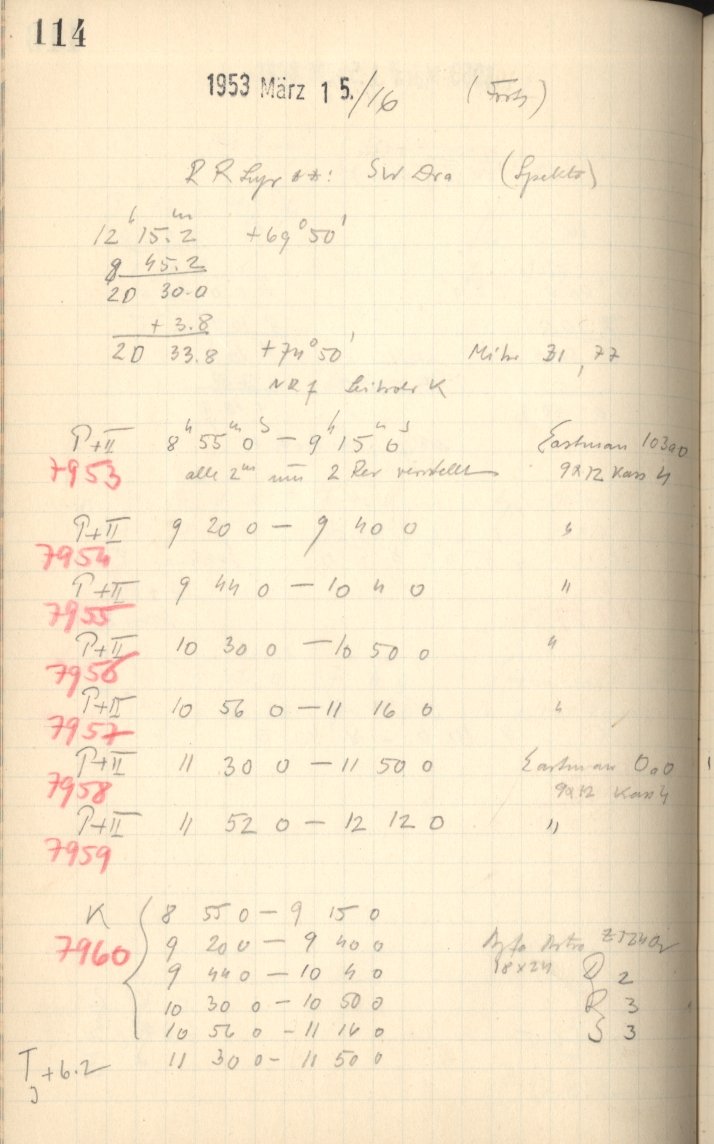 114
1953 März 15./16 (Forts)
RR Lyr **: SW Dra (Spektr)
12ʰ 15.2ᵐ +69° 50'
9 45.2
20 30.0
+ 3.8
20 33.8 +74° 50' Mitte 31, 77
NRf K
P+II 8ʰ 55ᵐ 0ˢ — 9ʰ 15ᵐ 0ˢ Eastman 103a0
7953 alle 2ᵐ um 2 Rev verstellt 9x12 Kass 4
P+II 9 20 0 — 9 40 0 "
7954
P+II 9 44 0 — 10 4 0 "
7955
P+II 10 30 0 — 10 50 0 "
7956
P+II 10 56 0 — 11 16 0 "
7957
P+II 11 30 0 — 11 50 0 Eastman 0a0
7958 9x12 Kass 4
P+II 11 52 0 — 12 12 0 "
7959
K 8 55 0 — 9 15 0
7960 9 20 0 — 9 40 0 Agfa Astro
9 44 0 — 10 4 0 18x24 D 2
10 30 0 — 10 50 0 R 3
10 56 0 — 11 16 0 S 3
11 30 0 — 11 50 0
T +6.2